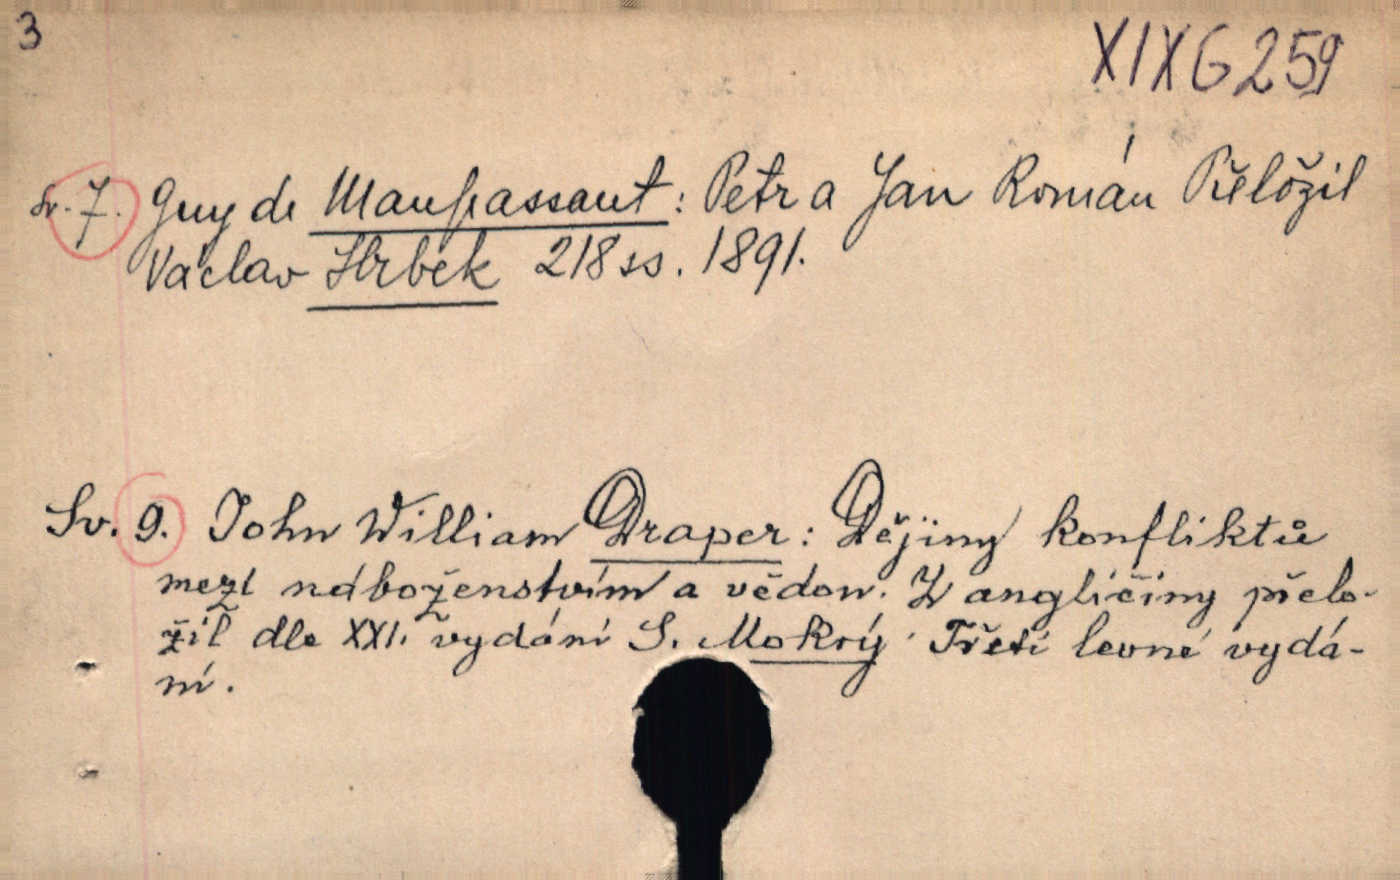 3
XIX G 259
Sv. 7. Guy de Maupassant: Petr a Jan Román Přeložil
Václav Hrbek 218 ss. 1891.
Sv. 9. John William Draper: Dějiny konfliktů
mezi náboženstvím a vědou. Z angličiny přelo-
žil dle XXI. vydání S. Mokrý. Třetí levné vydá-
ní.